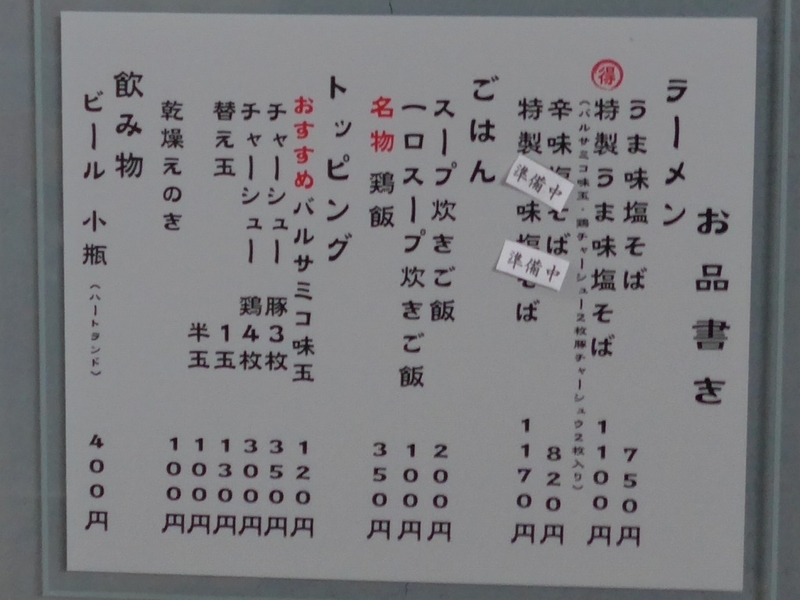 お品書き
ラーメン
うま味塩そば 750円
得 特製うま味塩そば 1100円
(バルサミコ味玉・鶏チャーシュー2枚豚チャーシュウ2枚入り)
辛味塩そば 820円
準備中
特製辛味塩そば 1170円
準備中
ごはん
スープ炊きご飯 200円
一口スープ炊きご飯 100円
名物 鶏飯 350円
トッピング
おすすめ バルサミコ味玉 120円
チャーシュー 豚3枚 350円
チャーシュー 鶏4枚 300円
替え玉 1玉 130円
半玉 100円
乾燥えのき 100円
飲み物
ビール 小瓶 (ハートランド) 400円